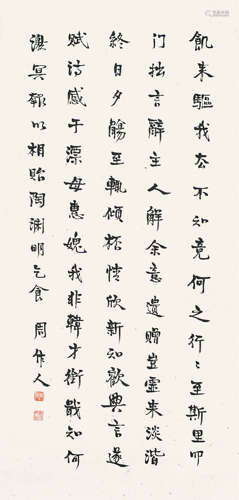 飢来驅我去不知竟何之行〻至斯里叩
门拙言辭主人解余意遺贈豈虛来談諧
終日夕觴至輒傾杯情欣新知歡興言遂
赋诗感子漂母惠媿我非韓才銜戢知何
謝冥報以相貽陶渊明乞食 周作人